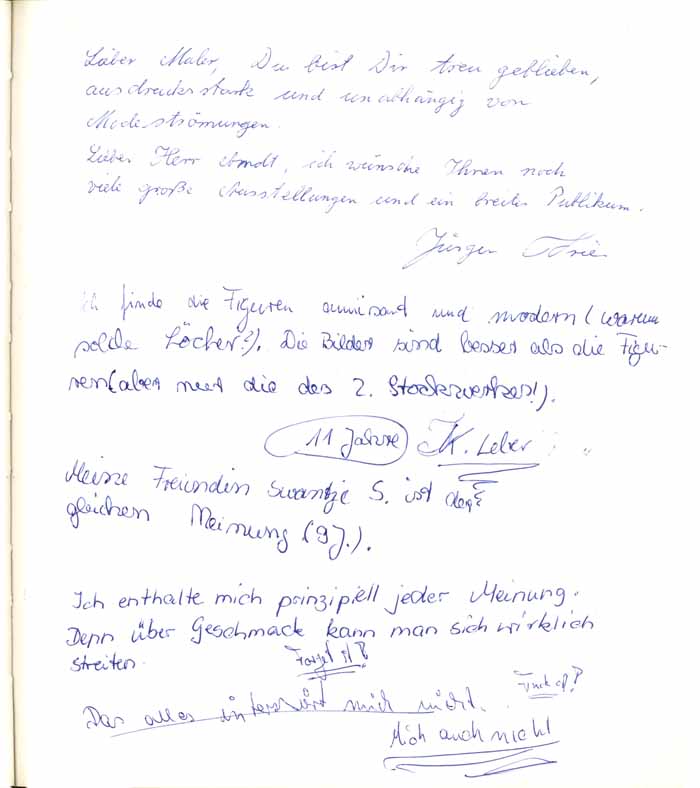 Lieber Maler, Du bist Dir treu geblieben,
ausdrucksstark und unabhängig von
Modeströmungen.
Lieber Herr ich wünsche Ihnen noch
viele große Ausstellungen und ein breites Publikum.
Jürgen
ich finde die Figuren amüsant und modern (warum
solche Löcher?). Die Bilder sind besser als die Figu-
ren (aber nur die des 2. Stockwerkes!).
11 Jahre K. Leber
Meine Freundin Swantje S. ist der
gleichen Meinung (9 J.).
Ich enthalte mich prinzipiell jeder Meinung.
Denn über Geschmack kann man sich wirklich
streiten.
Forget it!
Das alles mich nicht.
Mich auch nicht